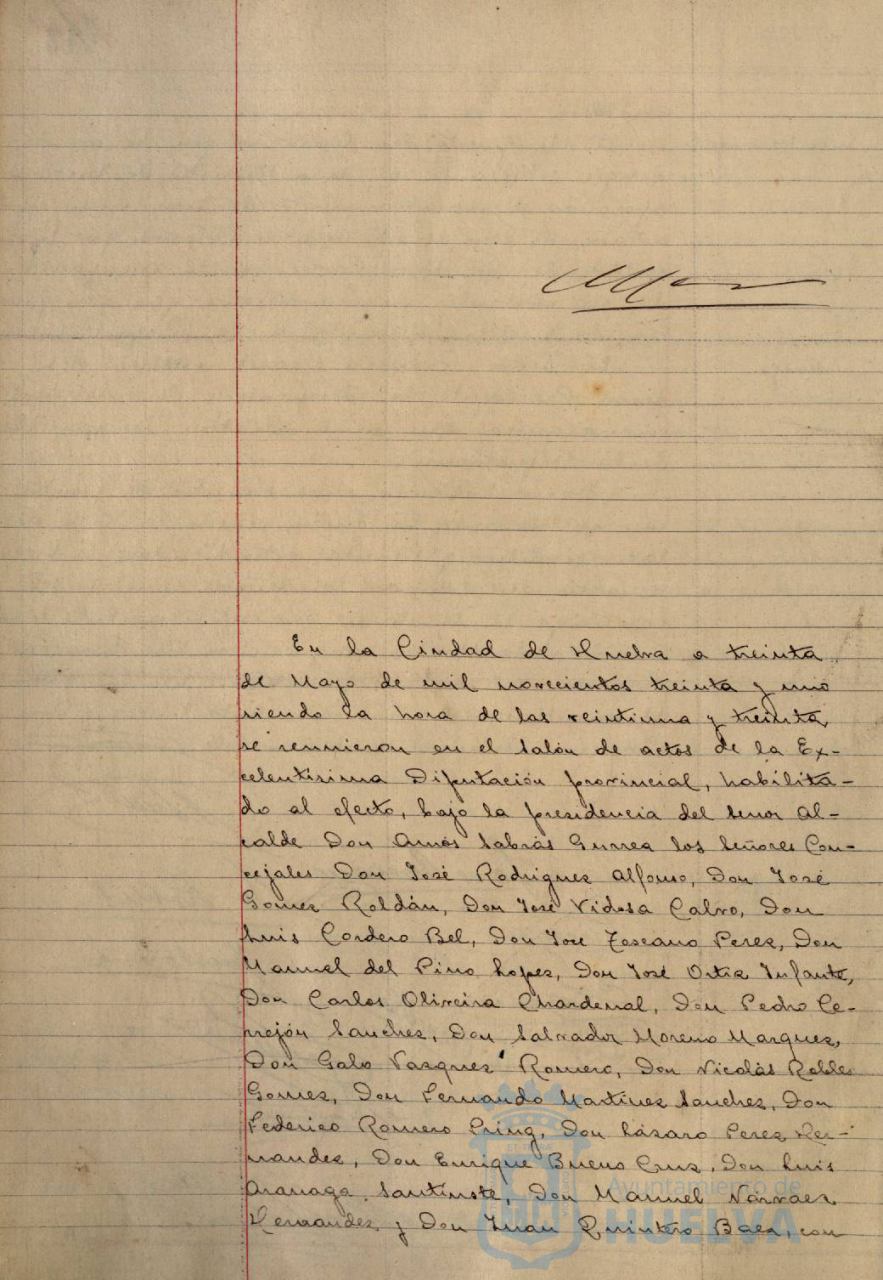 En la Ciudad de Huelva a treinta
de Mayo de mil novecientos treinta y uno
siendo la hora de las veintiuna y treinta,
se reunieron en el salón de actos de la Ex-
celentisima Diputación provincial, habilita-
do al efecto, bajo la presidencia del señor Al-
calde Don Amós Sabrás Gurrea los señores Con-
cejales Don José Rodriguez Alfonso, Don José
Gomez Roldán, Don José Vidosa Calvo, Don
Luis Cordero Bel, Don José Toscano Perez, Don
Manuel del Pino Lopez, Don José Ortiz Infante,
Don Carlos Oliveira Chardenal, Don Pedro Ce-
rrejón Sanchez, Don Salvador Moreno Marquez,
Don Galo Vazquez Romero, Don Nicolás Robles
Gomez, Don Fernando Martinez Sanchez, Don
Federico Romero Pring, Don Lázaro Perez Her-
nandez, Don Enrique Bueno Cruz, Don Luis
Aranaga Don Manuel Narvaez
Hernandez y Don Juan Quintero Baez, con
Ayuntamiento de
HUELVA